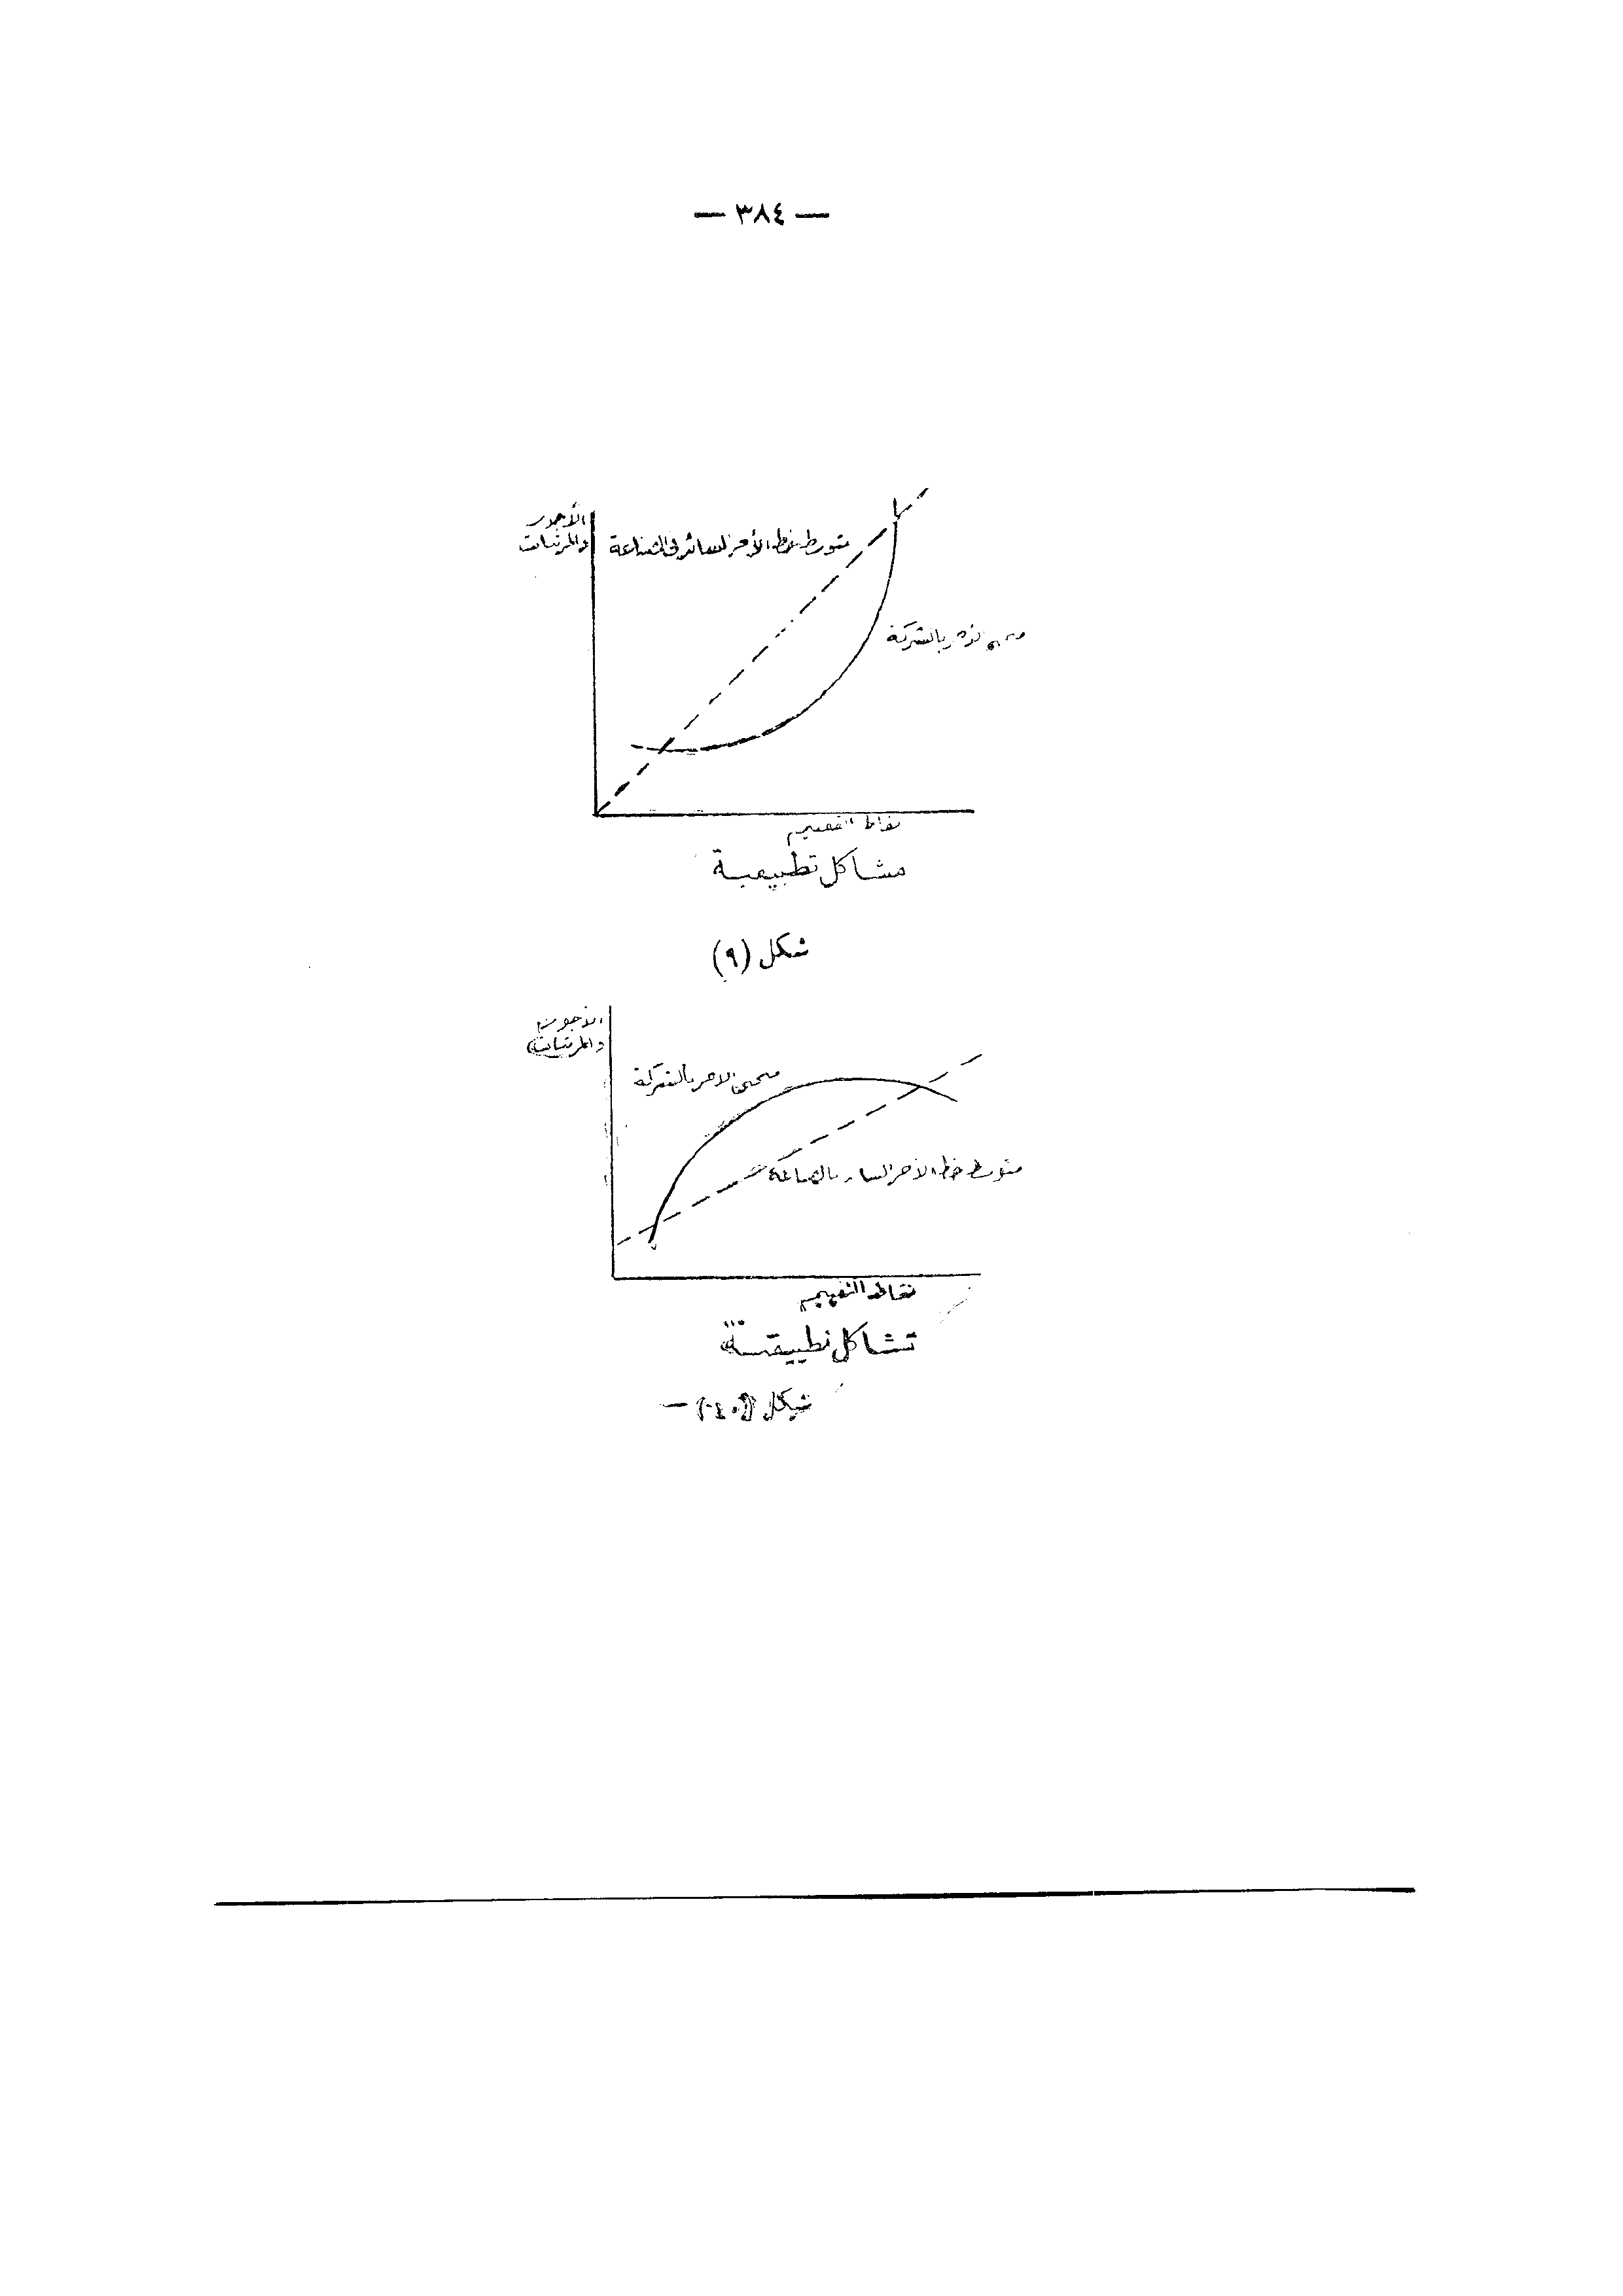 — ٣٨٤ —
الأجور
والمرتبات
متوسط خط الأجر السائد في الصناعة
بالشركة
نقاط التقييم
مشاكل تطبيقية
شكل (٩)
الأجور
والمرتبات
منحنى الأجر بالشركة
متوسط خط الأجر السائد بالصناعة
نقاط التقييم
مشاكل تطبيقية
شكل